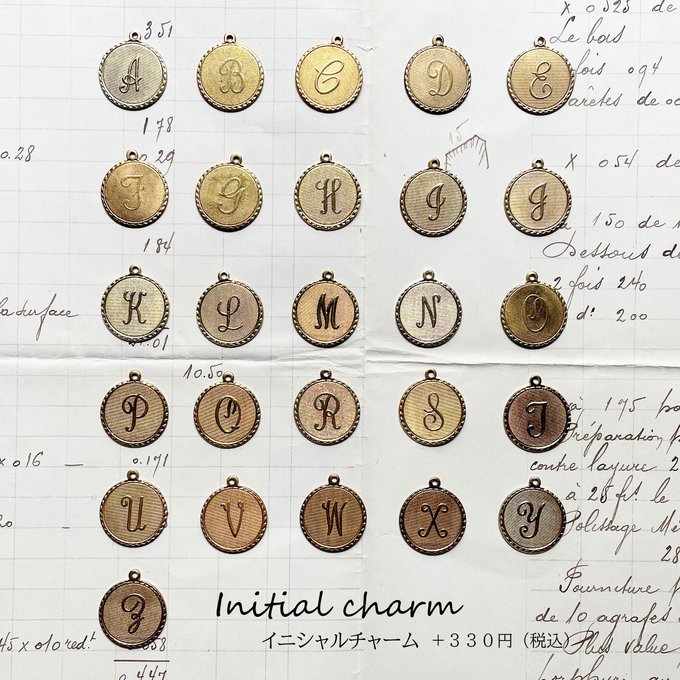 351
A B C D E
x 0525 de
Le bois
fois 094
178
0.28
0.29
F G H I J
15
x 054 de
184
150 de
Dessous de
2 fois 240
K L M N O
d: 200
la surface
01
10.50
P Q R S T
à 195
Préparation
contre layure 2
x 016 — 0.171
à 25 frt. le
U V W X Y
20
Polissage Mé
28
Fourniture
Z
de 10 agrafes
Initial charm
イニシャルチャーム +330円(税込)
Plus value
45 x 010 redt
0.447